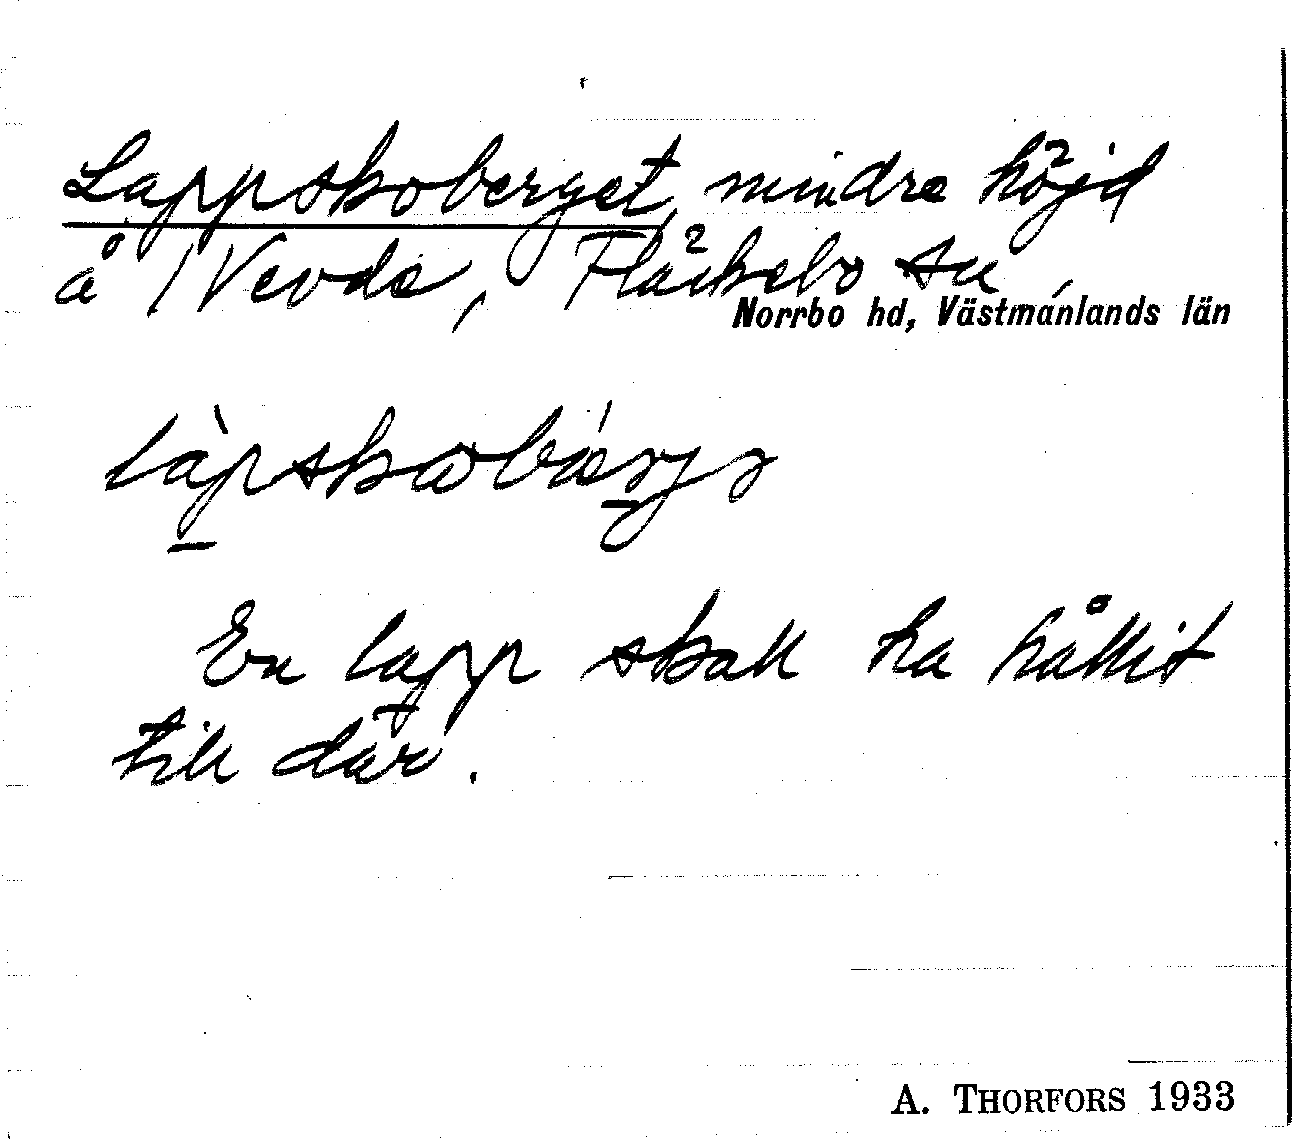 Lappskoberget, mindre höjd
å Vevde, Fläckebo sn,
Norrbo hd, Västmanlands län
En lapp skall ha hållit
till där.
A. THORFORS 1933